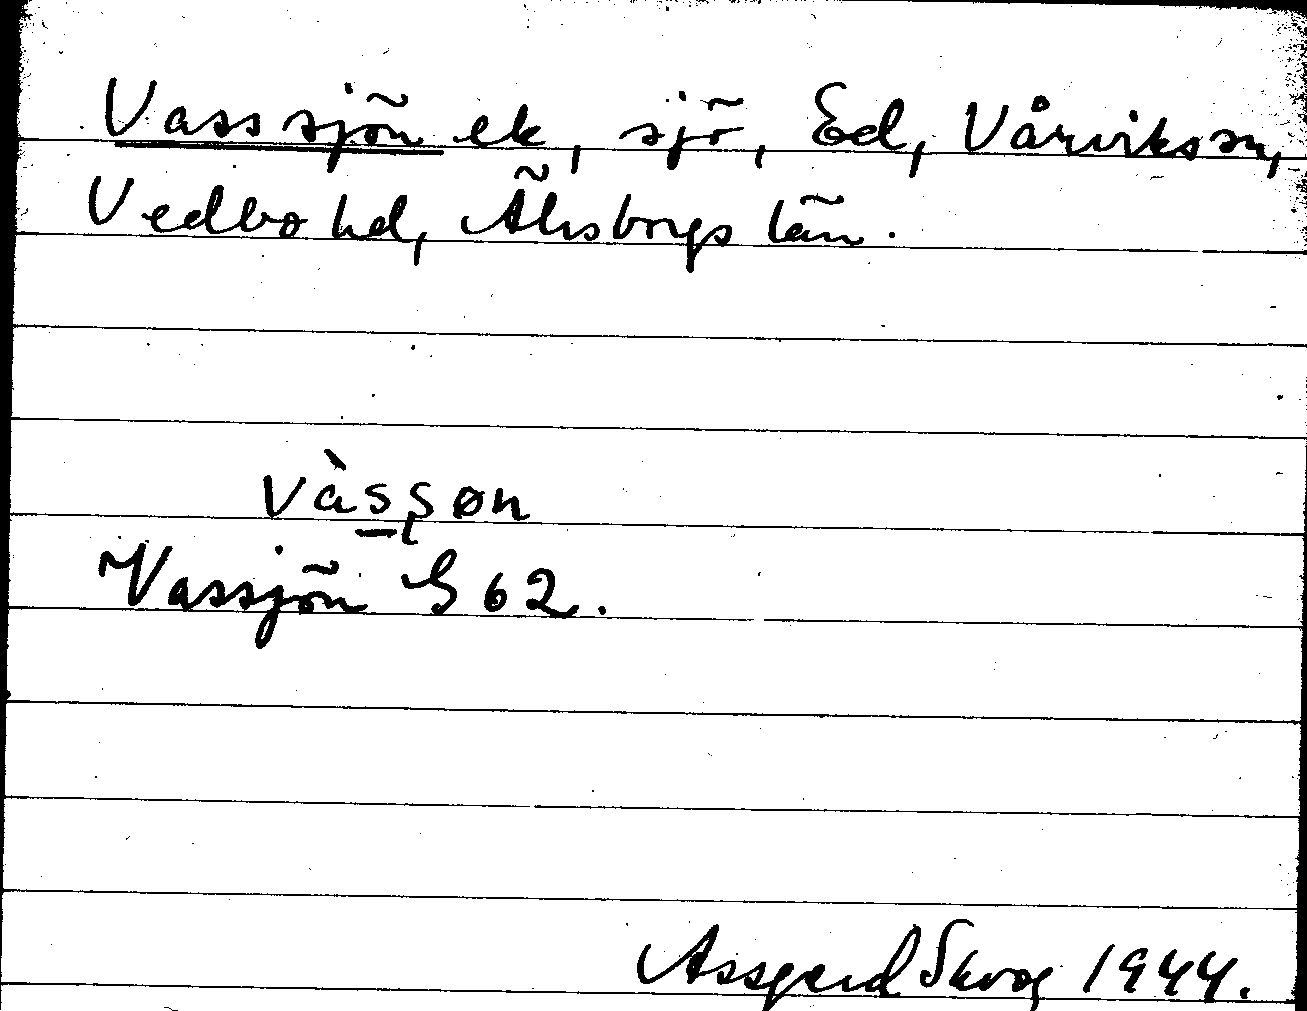 Vasssjön ek, sjö, Ed, Vårviks sn,
Vedbo hd, Älvsborgs län.
vàsʂøn
Vassjön G 62.
Assgerd Skog 1944.